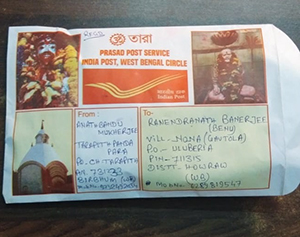 ॐ তারা
PRASAD POST SERVICE
INDIA POST, WEST BENGAL CIRCLE
भारतीय डाक
India Post
From :
ANATHBANDHU
MUKHERJEE
TARAPITH PANDA
PARA
PO. CHITARAPITH
731233
BIRBHUM (WB)
To:
RANENDRANATH BANERJEE
(BENU)
VILL- NONA (GAYTOLA)
P.O- ULUBERIA
PIN- 711315
DISTT HOWRAH
(WB)